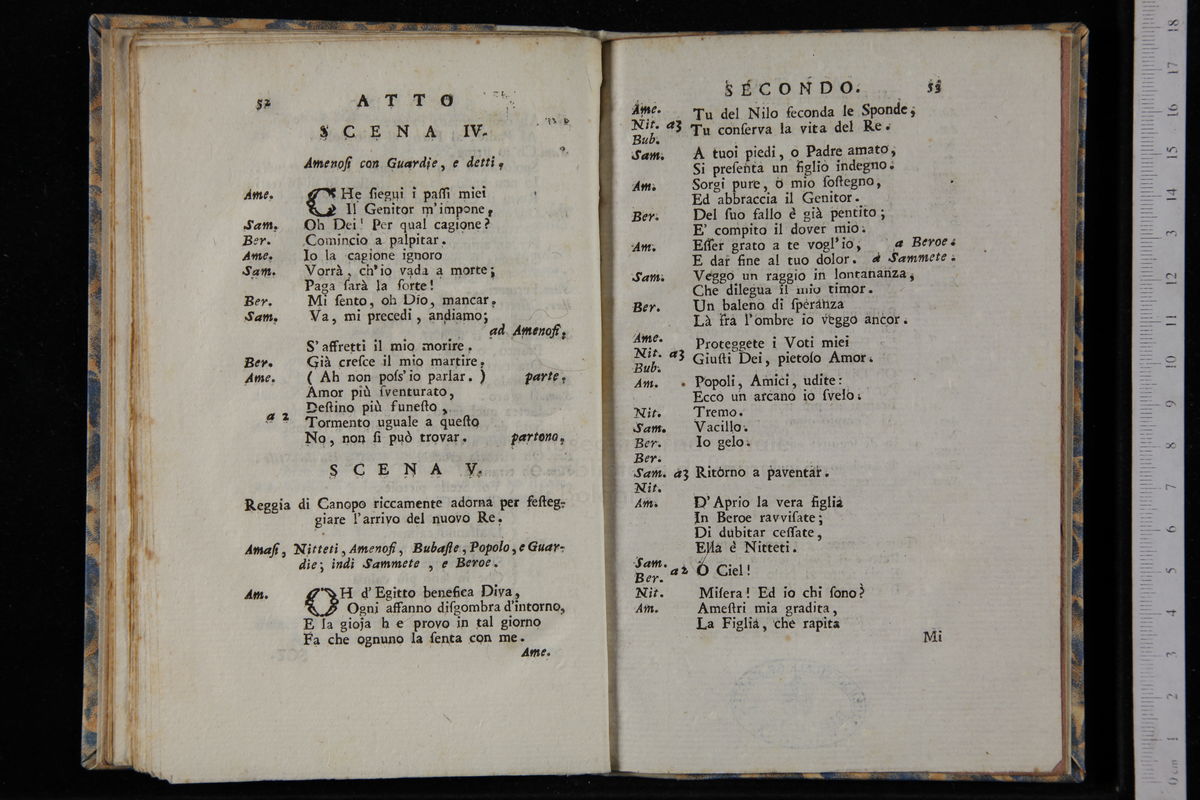 52 ATTO
SCENA IV.
Amenoſi con Guardie, e detti.
Ame. CHe ſiegui i paſſi miei
Il Genitor m'impone.
Sam. Oh Dei! Per qual cagione?
Ber. Comincio a palpitar.
Ame. Io la cagione ignoro
Sam. Vorrà, ch'io vada a morte;
Paga ſarà la ſorte!
Ber. Mi ſento, oh Dio, mancar.
Sam. Va, mi precedi, andiamo;
ad Amenoſi.
S'affretti il mio morire.
Ber. Già creſce il mio martire.
Ame. (Ah non poſs'io parlar.) parte.
Amor più ſventurato,
Deſtino più funeſto,
a 2 Tormento uguale a queſto
No, non ſi può trovar. partono.
SCENA V.
Reggia di Canopo riccamente adorna per feſteg-
giare l'arrivo del nuovo Re.
Amaſi, Nitteti, Amenoſi, Bubaſte, Popolo, e Guar-
die; indi Sammete, e Beroe.
Am. OH d'Egitto benefica Diva,
Ogni affanno diſgombra d'intorno,
E la gioja h e provo in tal giorno
Fa che ognuno la ſenta con me.
Ame.
SECONDO. 53
Ame.
Nit. a3
Bub.
Tu del Nilo feconda le Sponde;
Tu conſerva la vita del Re.
Sam. A tuoi piedi, o Padre amato,
Si preſenta un figlio indegno.
Am. Sorgi pure, o mio ſoſtegno,
Ed abbraccia il Genitor.
Ber. Del ſuo fallo è già pentito;
E' compito il dover mio.
Am. Eſſer grato a te vogl'io, a Beroe.
E dar fine al tuo dolor. a Sammete.
Sam. Veggo un raggio in lontananza,
Che dilegua il mio timor.
Ber. Un baleno di ſperanza
Là fra l'ombre io veggo ancor.
Ame.
Nit. a3
Bub.
Proteggete i Voti miei
Giuſti Dei, pietoſo Amor.
Am. Popoli, Amici, udite:
Ecco un arcano io ſvelo.
Nit. Tremo.
Sam. Vacillo.
Ber. Io gelo.
Ber.
Sam. a3 Ritorno a paventar.
Nit.
Am. D'Aprio la vera figlia
In Beroe ravviſate;
Di dubitar ceſſate,
Ella è Nitteti.
Sam.
Ber. a2 O Ciel!
Nit. Miſera! Ed io chi ſono?
Am. Ameſtri mia gradita,
La Figlia, che rapita
Mi